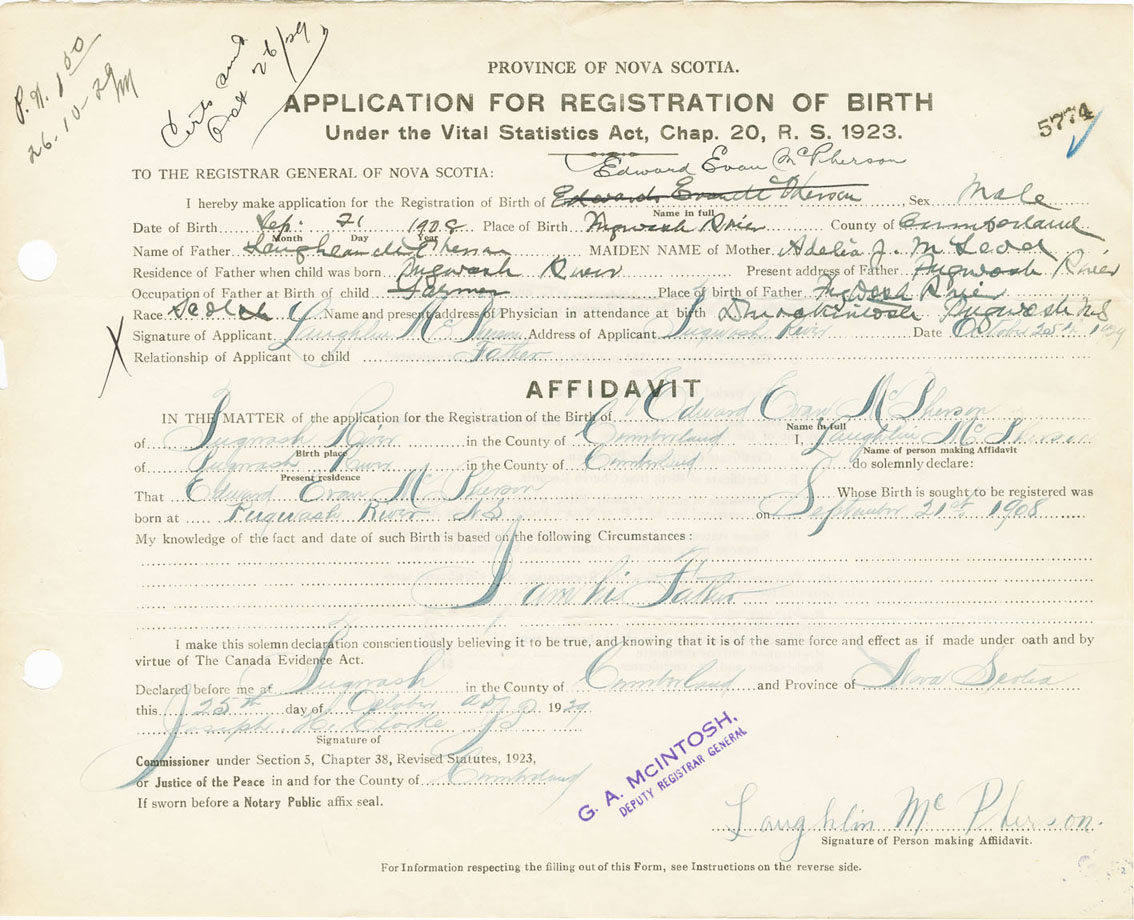 P.N. 1 00
26-10-29 M
Certs and
26/29
PROVINCE OF NOVA SCOTIA.
APPLICATION FOR REGISTRATION OF BIRTH
Under the Vital Statistics Act, Chap. 20, R. S. 1923.
5774
Edward Evan McPherson
TO THE REGISTRAR GENERAL OF NOVA SCOTIA:
I hereby make application for the Registration of Birth of Edward Everett McPherson Sex Male
Name in full
Date of Birth Sep. 21 1908 Place of Birth Pugwash River County of Cumberland
Month Day Year
Name of Father Laughlan McPherson MAIDEN NAME of Mother Adelia J. McLeod
Residence of Father when child was born Pugwash River Present address of Father Pugwash River
Occupation of Father at Birth of child Farmer Place of birth of Father Pugwash River
Race Scotch Name and present address of Physician in attendance at birth Dr. Mackintosh Pugwash NS
Signature of Applicant Laughlin McPherson Address of Applicant Pugwash River Date October 25th 1929
X Relationship of Applicant to child Father
AFFIDAVIT
IN THE MATTER of the application for the Registration of the Birth of Edward Evan McPherson
Name in full
of Pugwash River in the County of Cumberland I, Laughlin McPherson
Birth place Name of person making Affidavit
of Pugwash River in the County of Cumberland do solemnly declare:
Present residence
That Edward Evan McPherson Whose Birth is sought to be registered was
born at Pugwash River NS on September 21st 1908
My knowledge of the fact and date of such Birth is based on the following Circumstances:
I am his Father
I make this solemn declaration conscientiously believing it to be true, and knowing that it is of the same force and effect as if made under oath and by
virtue of The Canada Evidence Act.
Declared before me at Pugwash in the County of Cumberland and Province of Nova Scotia
this 25th day of October AD 1929
Joseph H. Clarke JP
Signature of
Commissioner under Section 5, Chapter 38, Revised Statutes, 1923,
or Justice of the Peace in and for the County of Cumberland
If sworn before a Notary Public affix seal.
G. A. McINTOSH,
DEPUTY REGISTRAR GENERAL
Laughlin McPherson.
Signature of Person making Affidavit.
For Information respecting the filling out of this Form, see Instructions on the reverse side.